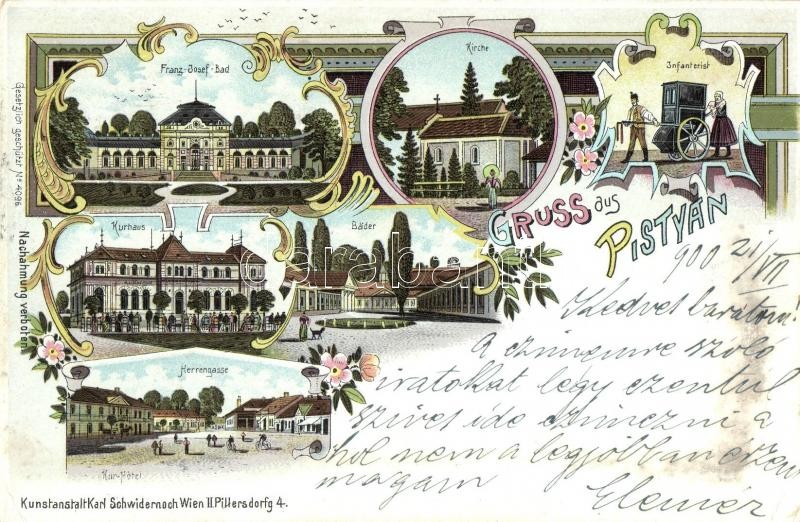 Franz-Josef-Bad
Kirche
Infanterist
Gesetzlich geschützt No 4096
Nachahmung verboten
Kurhaus
Bäder
GRUSS aus
PISTYÁN
Herrengasse
Kur-Hôtel
900 21/VII
Kedves barátom!
A czimemre szóló
iratokat légy ezentul
szives ide czimezni a
hol nem a legjobban érzem
magam
Elemér
Kunstanstalt Karl Schwidernoch Wien II. Pillersdorfg 4.
darabanth.com